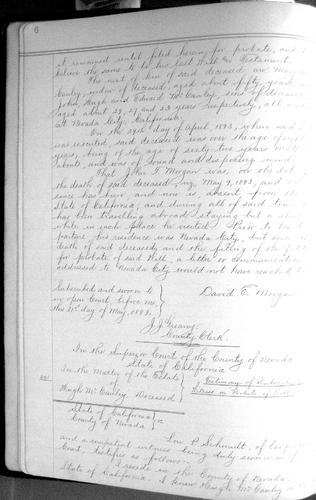 6
it remained until filed herein, for probate, and I
believe the same to be his last Will and Testament.
The next of kin of said deceased are Mary Mc
Cauley, widow of deceased, aged about fifty years, and
John, Hugh and Edward McCauley, sons of deceased
aged about 29, 27 and 23 years respectively, all
at Nevada City, California.
On the 29th day of April, 1893, when said
was executed, said deceased was over the age of eighteen
years, being of the age of sixty two years or there
abouts, and was of sound and disposing mind,
That John T. Morgan was, on the date
the death of said deceased, viz, May 9, 1893, and
since has been and now is absent from the
State of California, and during all of said time
has been travelling abroad staying but a short
while in each place he visited. Prior to his de
parture, his residence was Nevada City, but since
death of said deceased and the filing of the petition
for probate of said Will, a letter or communication
addressed to Nevada City would not have reached
Subscribed and sworn to
in open Court, before me,
this day of May, 1893.
David E. Morgan
J. J. Greany
County Clerk.
In the Superior Court of the County of Nevada
State of California
In the Matter of the Estate
of
Hugh McCauley Deceased
Testimony of Subscribing
Witness on Probate of Will
State of California
County of Nevada
ss
Lou P. Schmidt, of lawful age
and a competent witness being duly sworn in open
Court, testifies as follows:
I reside in the County of Nevada
State of California. I knew Hugh McCauley on the